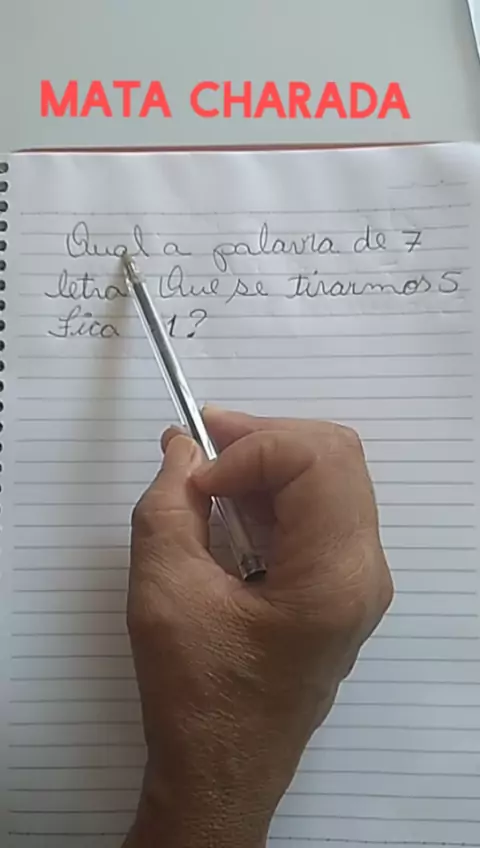 MATA CHARADA
Qual a palavra de 7
letra Que se tirarmos 5
fica 1?